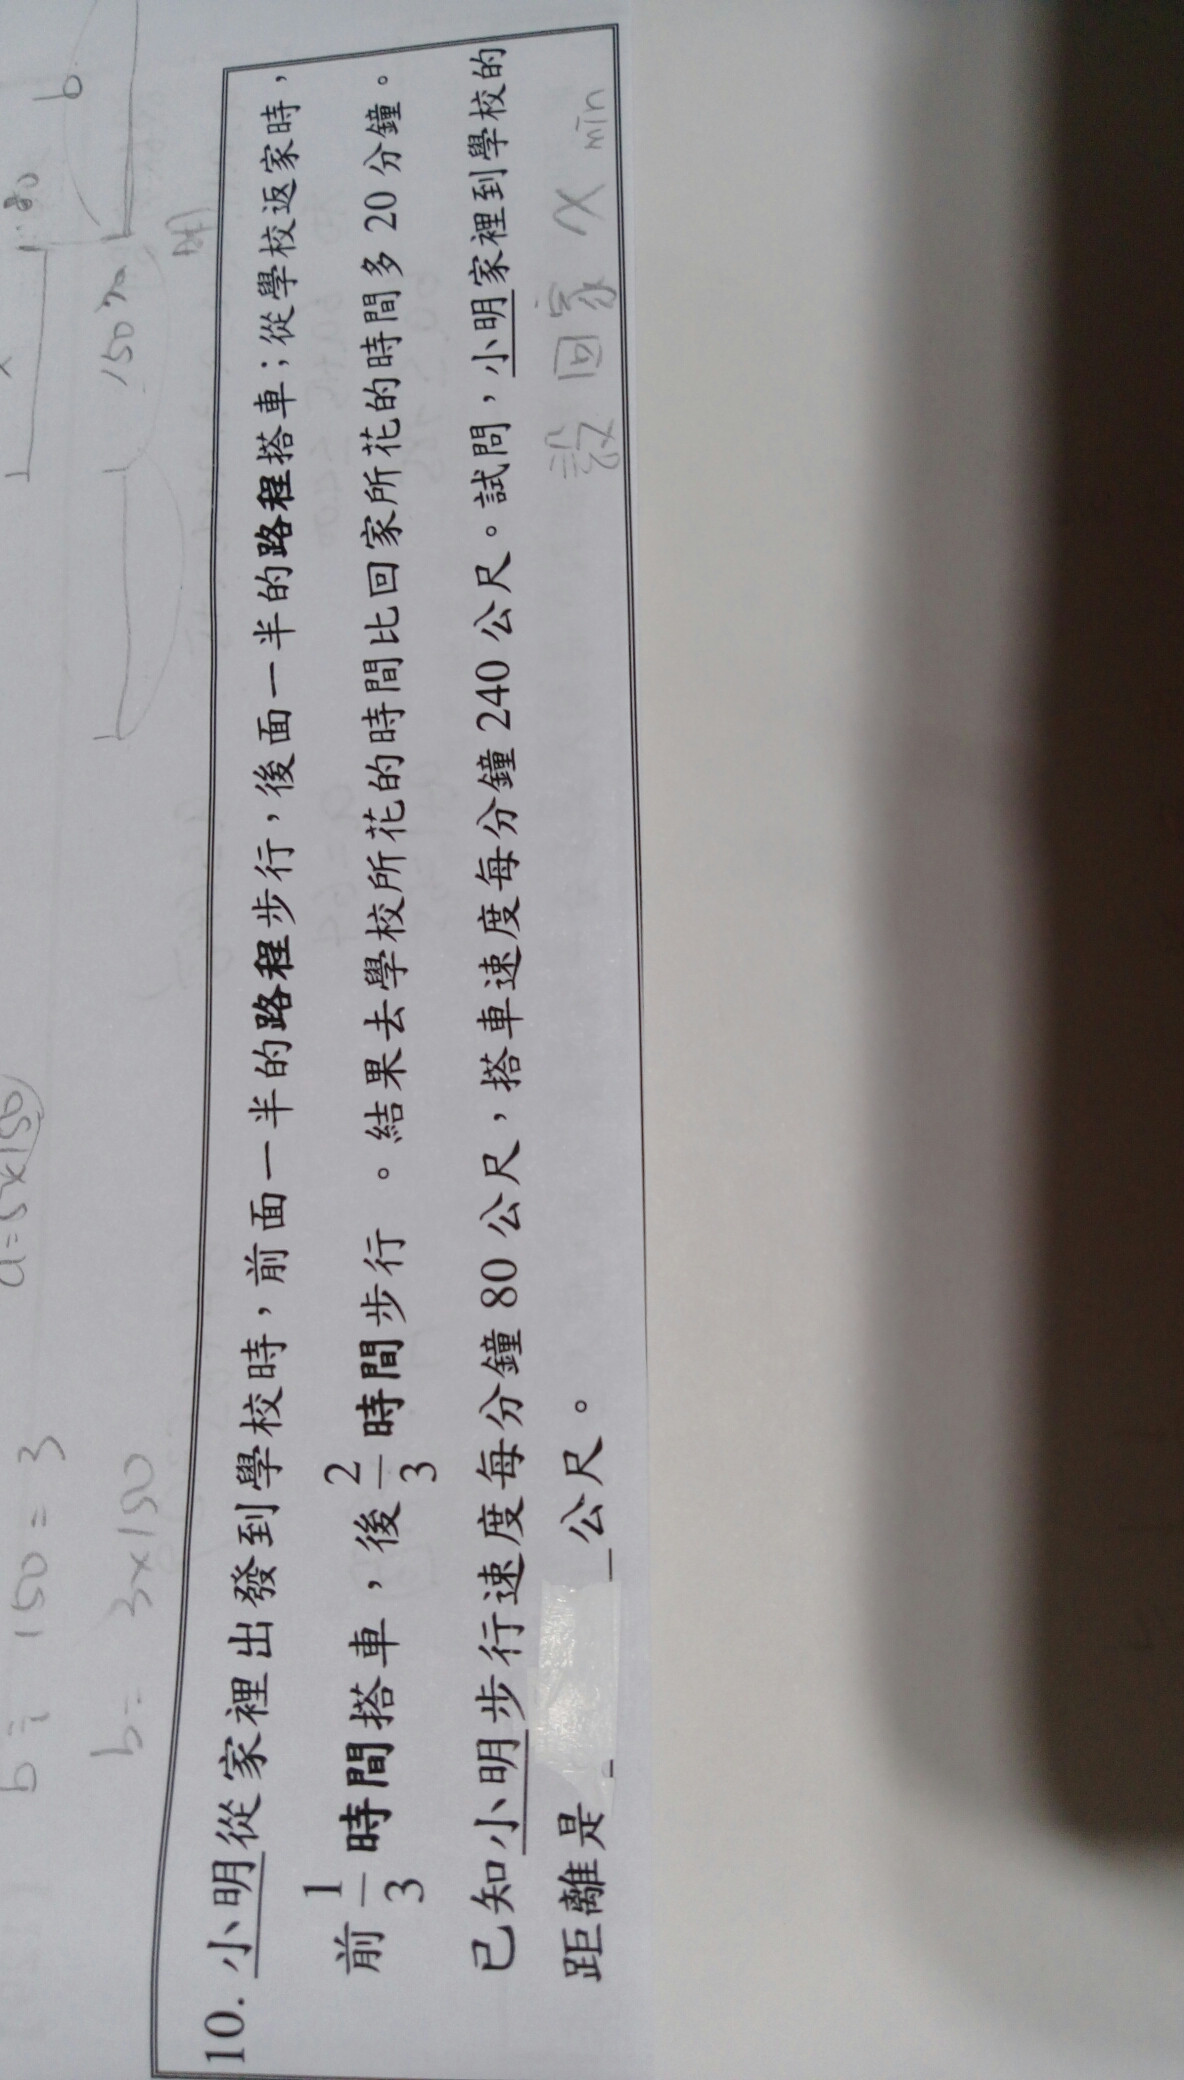 b= 150=3
a=5×150
b= 3×150
150%
10. 小明從家裡出發到學校時，前面一半的路程步行，後面一半的路程搭車；從學校返家時，
前1/3時間搭車，後2/3時間步行 。結果去學校所花的時間比回家所花的時間多 20 分鐘。
已知小明步行速度每分鐘 80 公尺，搭車速度每分鐘 240 公尺。試問，小明家裡到學校的
距離是 公尺。
設回家 x min